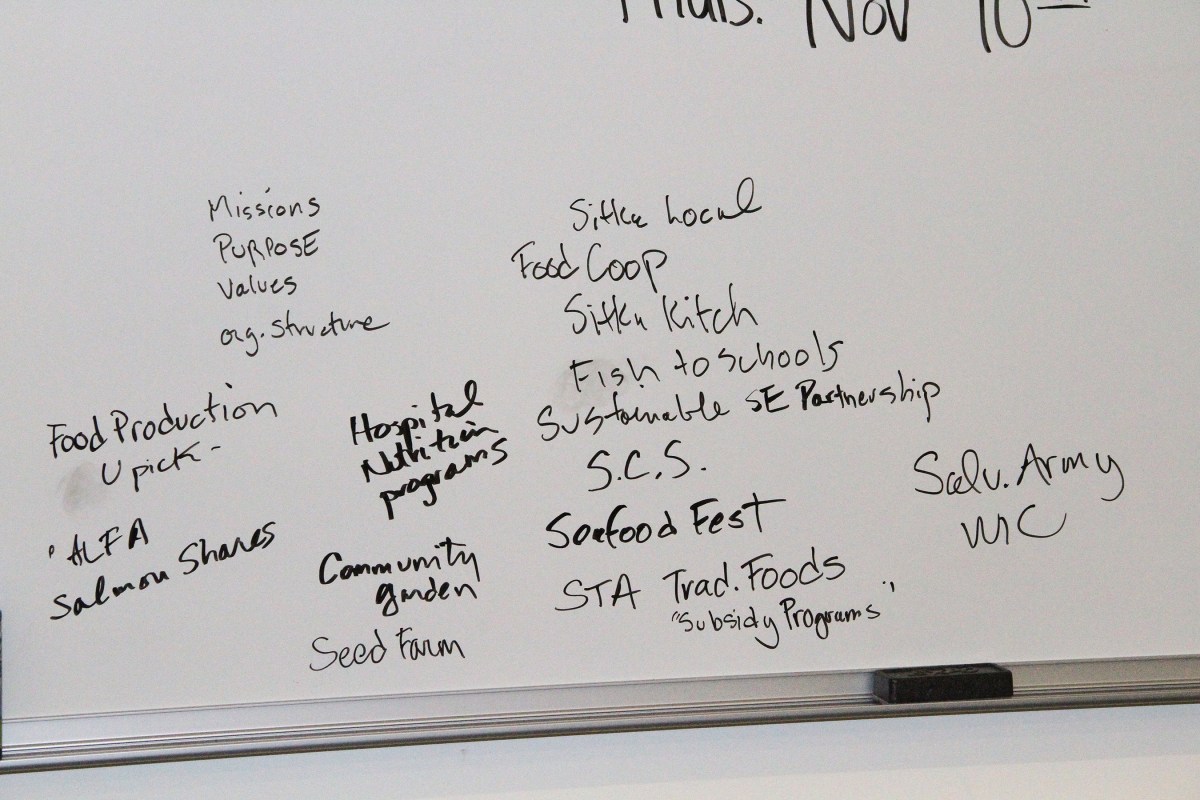 Thurs. Nov 10th
Missions
PURPOSE
Values
org. structure
Sitka Local
Food Coop
Sitka Kitch
Fish to Schools
Sustainable SE Partnership
S.C.S.
Seafood Fest
STA Trad. Foods
"Subsidy Programs"
Food Production
U pick -
• ALFA
Salmon Shares
Hospital
Nutrition
programs
Community
garden
Seed Farm
Salv. Army
WIC